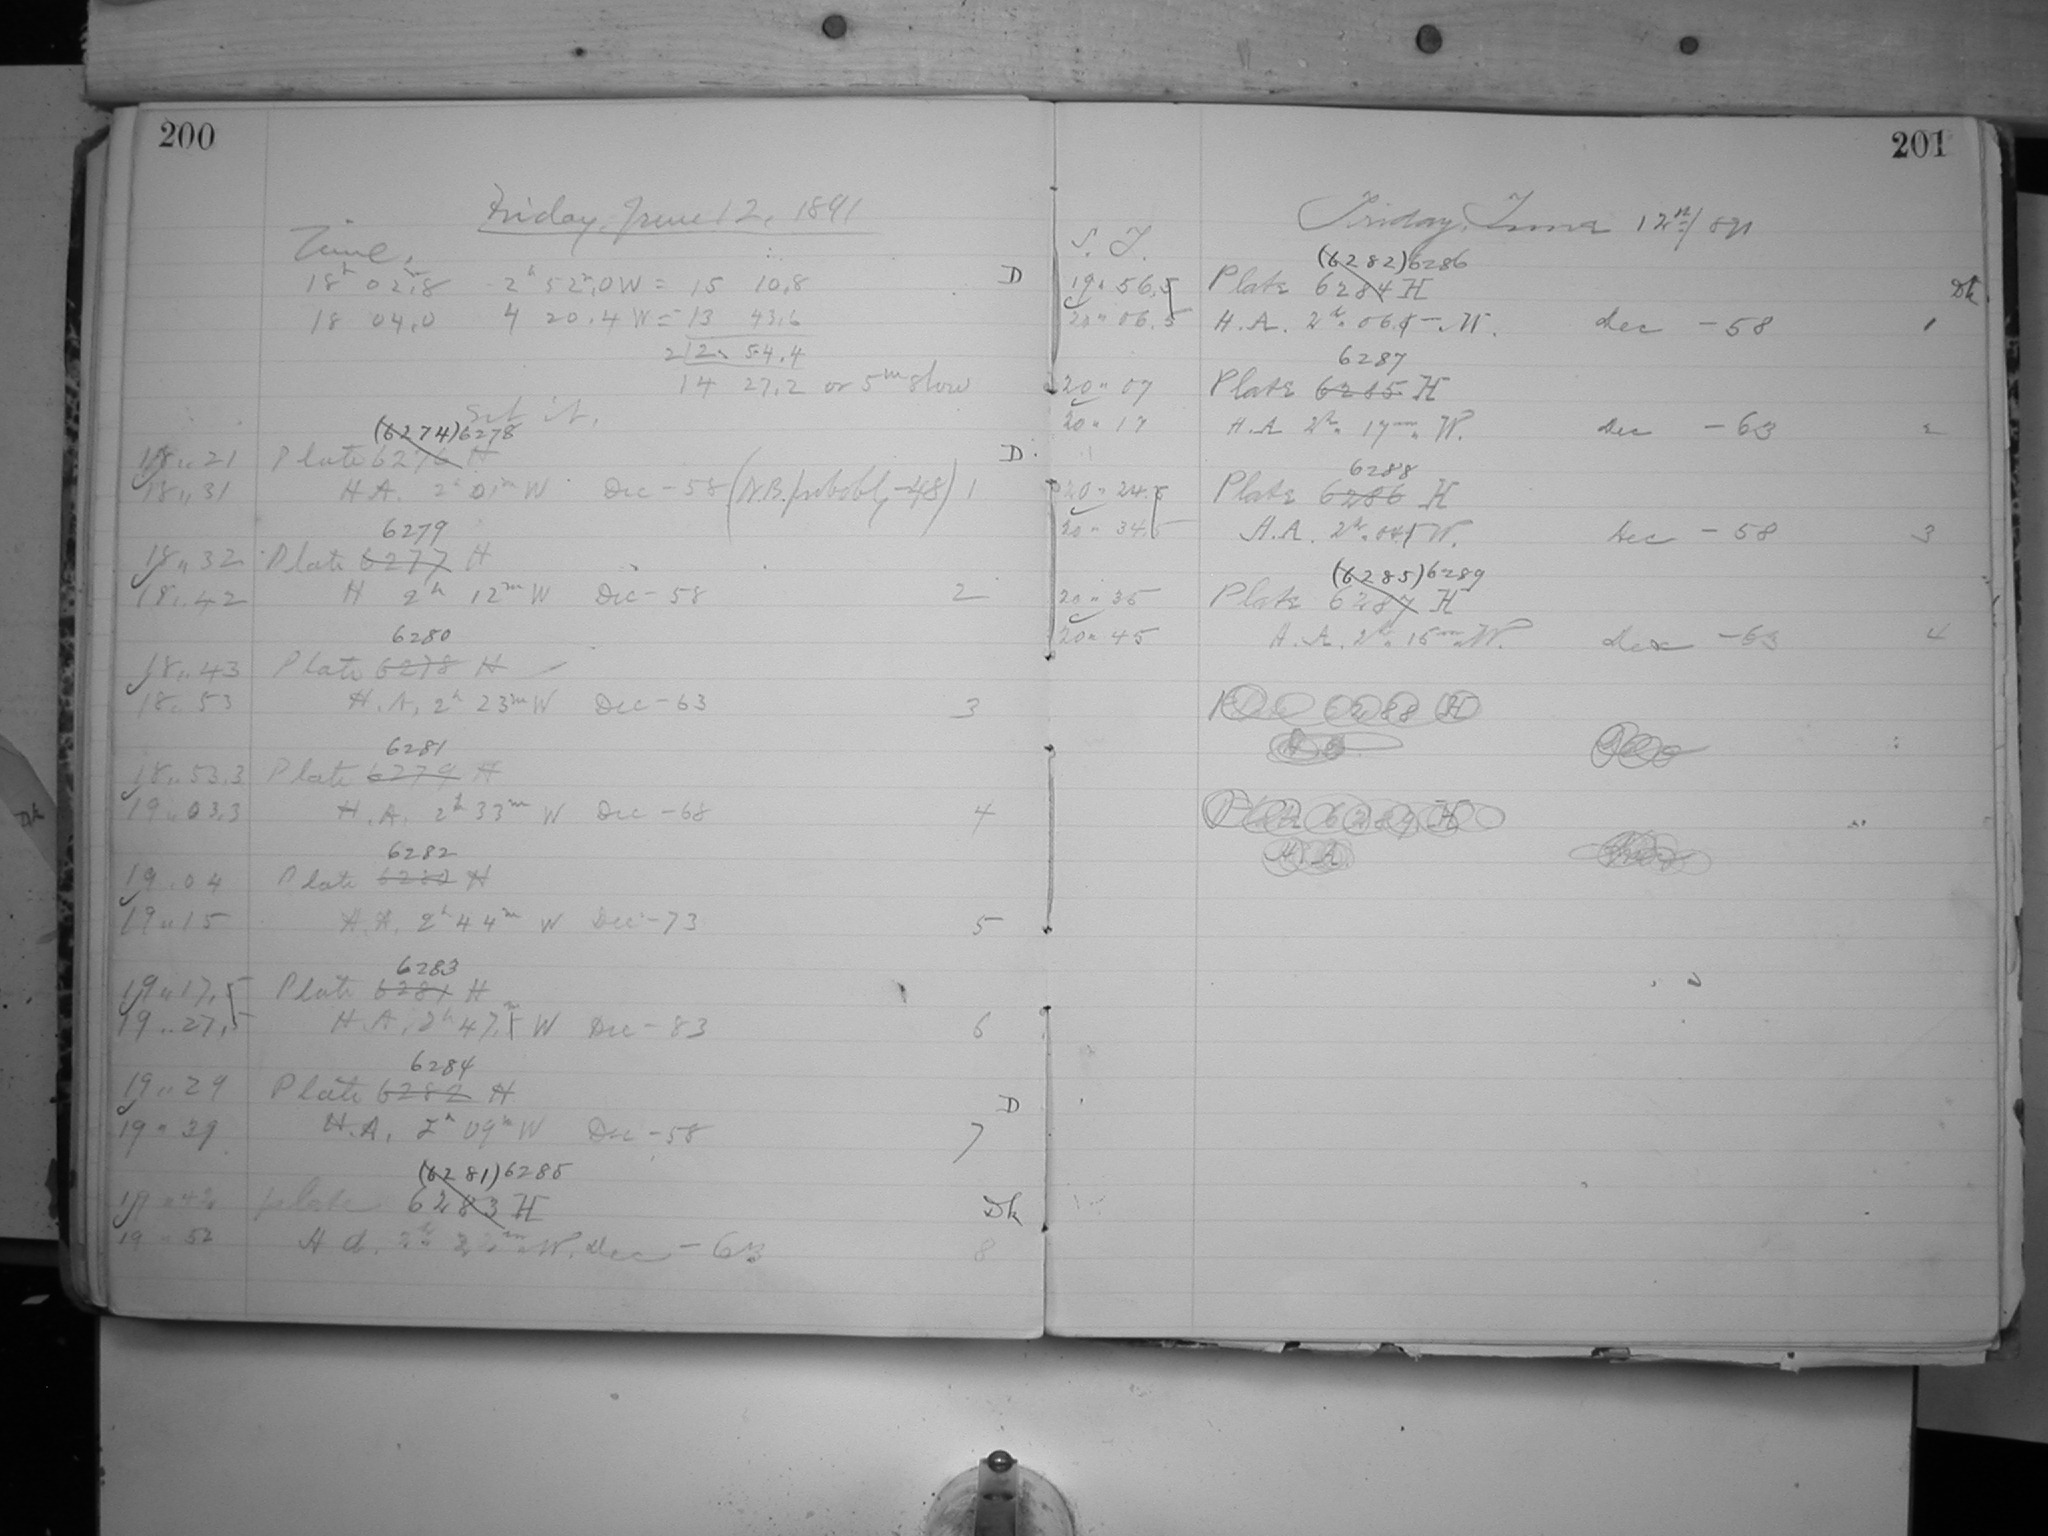 200
Friday, June 12, 1891
Time,
18h 02m,8 2h 52m,0 W = 15 10,8 D
18 04,0 4 20,4 W = 13 43,6
2 | 2. 54,4
14 27,2 or 5m slow
Set it.
(6274) 6278
18,, 21 Plate 6276 H D
18,, 31 H.A. 2h 01m W Dec - 58 (N.B. probably - 48) 1
6279
18,, 32 Plate 6277 H
18,, 42 H 2h 12m W Dec - 58 2
6280
18,, 43 Plate 6278 H
18,, 53 H.A. 2h 23m W Dec - 63 3
6281
18,, 53.3 Plate 6279 H
19,, 03.3 H.A. 2h 33m W Dec - 68 4
6282
19,, 04 Plate 6280 H
19,, 15 H.A. 2h 44m W Dec - 73 5
6283
19,, 17,5 Plate 6281 H
19,, 27,5 H.A. 2h 47,5m W Dec - 83 6
6284
19,, 29 Plate 6282 H D
19,, 39 H.A. 2h 09m W Dec - 58 7
(6281) 6285
19,, 42 plate 6283 H Dk
19,, 52 H A. 2h 22m W. Dec - 63 8
201
Friday, June 12th/891
S. T.
(6282) 6286
19,, 56,5 Plate 6284 H Dk.
20,, 06.5 H.A. 2h 06.5 W. Dec - 58 1
6287
20,, 07 Plate 6285 H
20,, 17 H.A 2h 17m W. Dec - 63 2
6288
20,, 24.5 Plate 6286 H
20,, 34.5 H.A. 2h 04.5 W. Dec - 58 3
(6285) 6289
20,, 35 Plate 6287 H
20,, 45 H.A. 2h 15m W. Dec - 63 4
6288 H
Plate 6289 H
H.A.